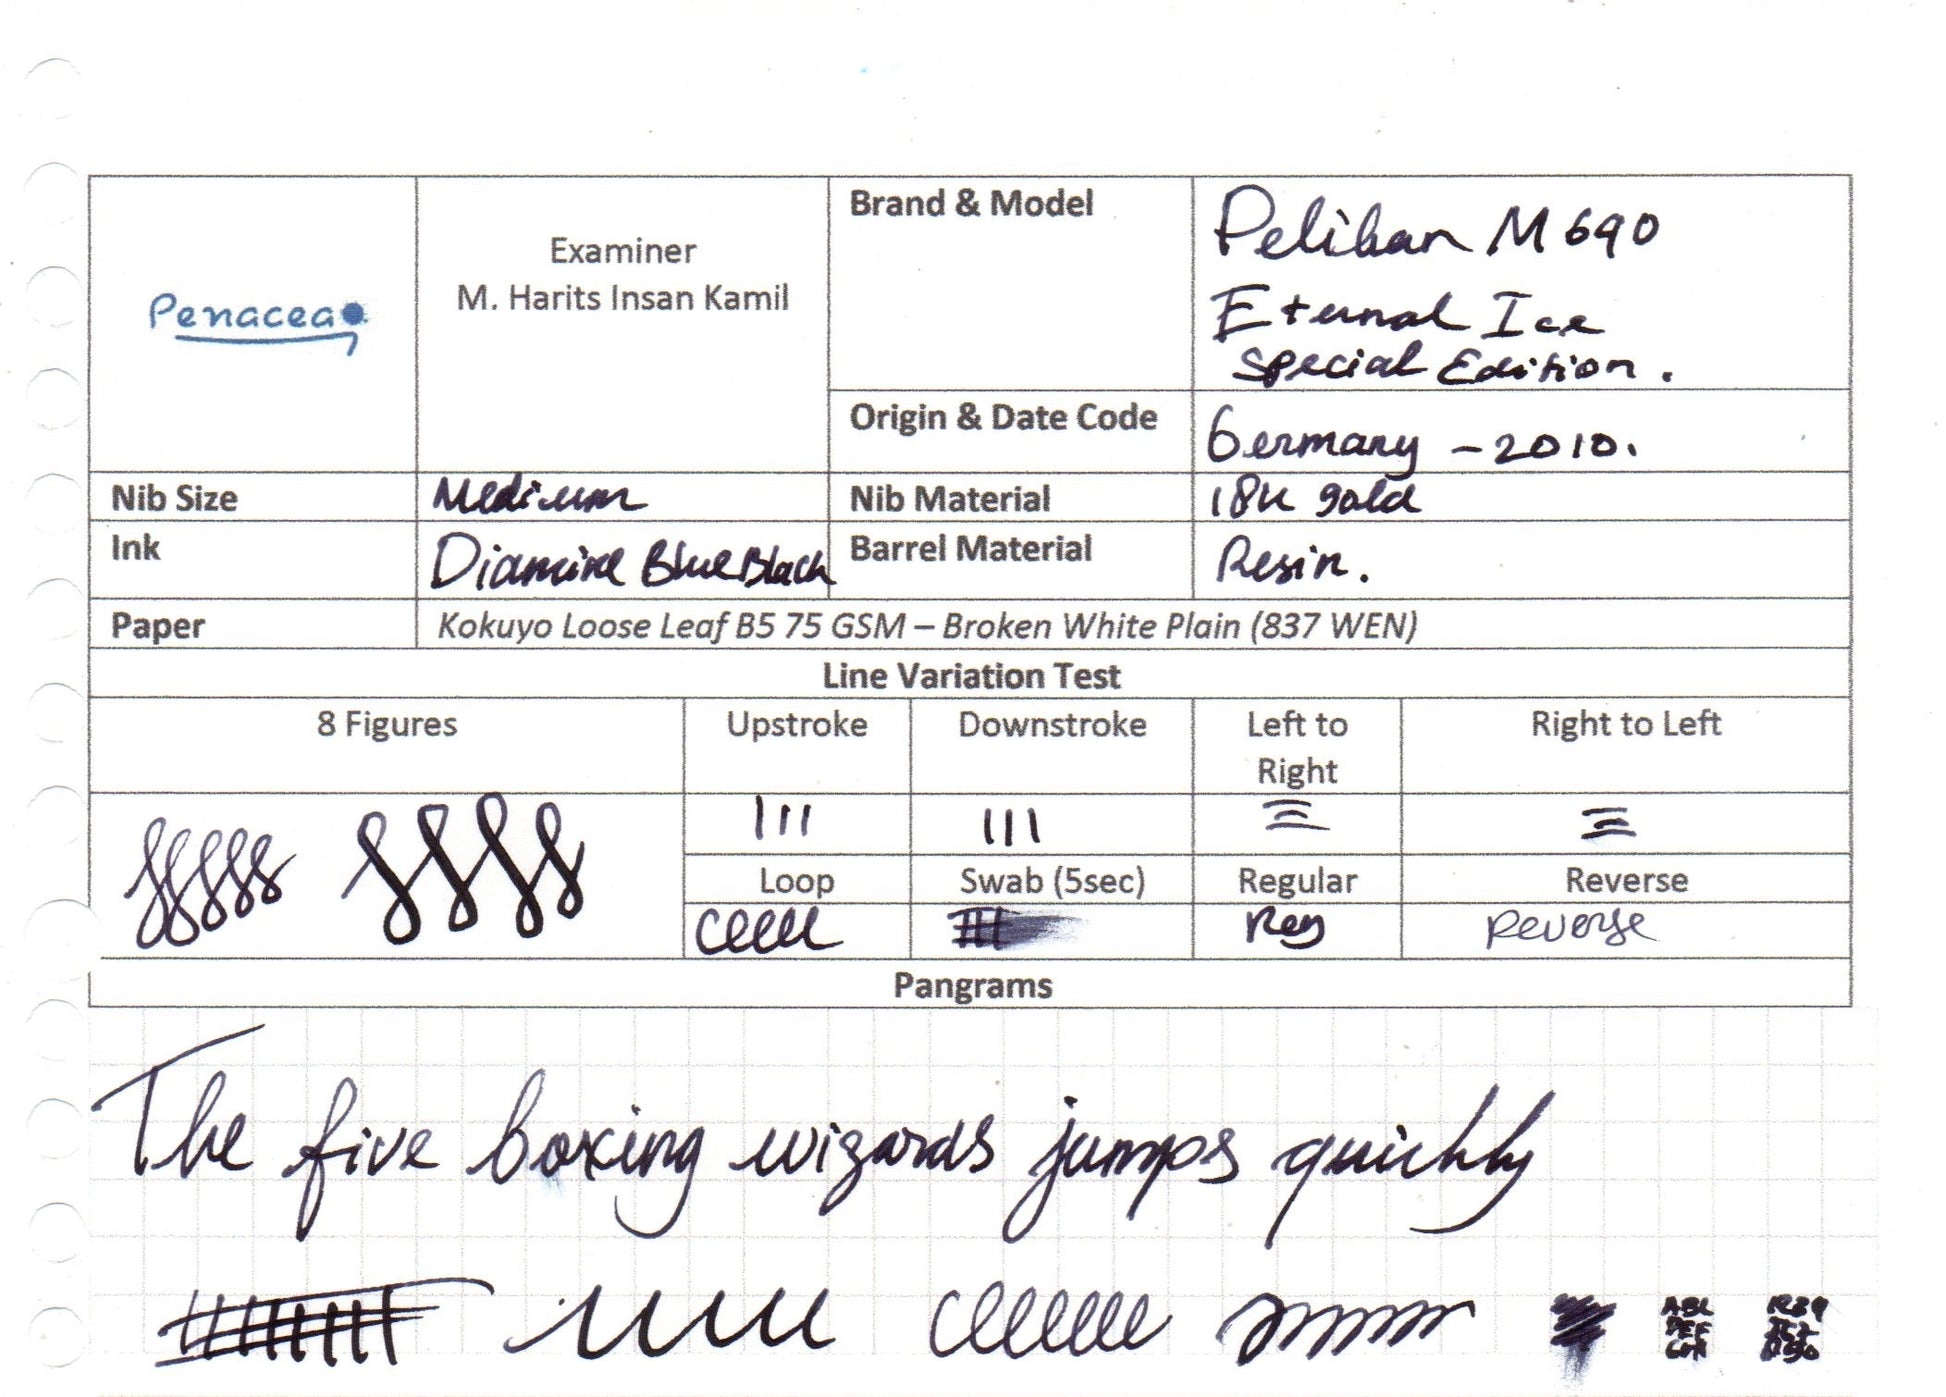 Penacea
Examiner
M. Harits Insan Kamil
Brand & Model
Pelikan M690
Eternal Ice
Special Edition.
Origin & Date Code
Germany – 2010.
Nib Size
Medium
Nib Material
18K gold
Ink
Diamine Blue Black
Barrel Material
Resin.
Paper
Kokuyo Loose Leaf B5 75 GSM – Broken White Plain (837 WEN)
Line Variation Test
8 Figures
Upstroke
Downstroke
Left to
Right
Right to Left
Loop
Swab (5sec)
Regular
Reverse
Reg
Reverse
Pangrams
The five boxing wizards jumps quickly